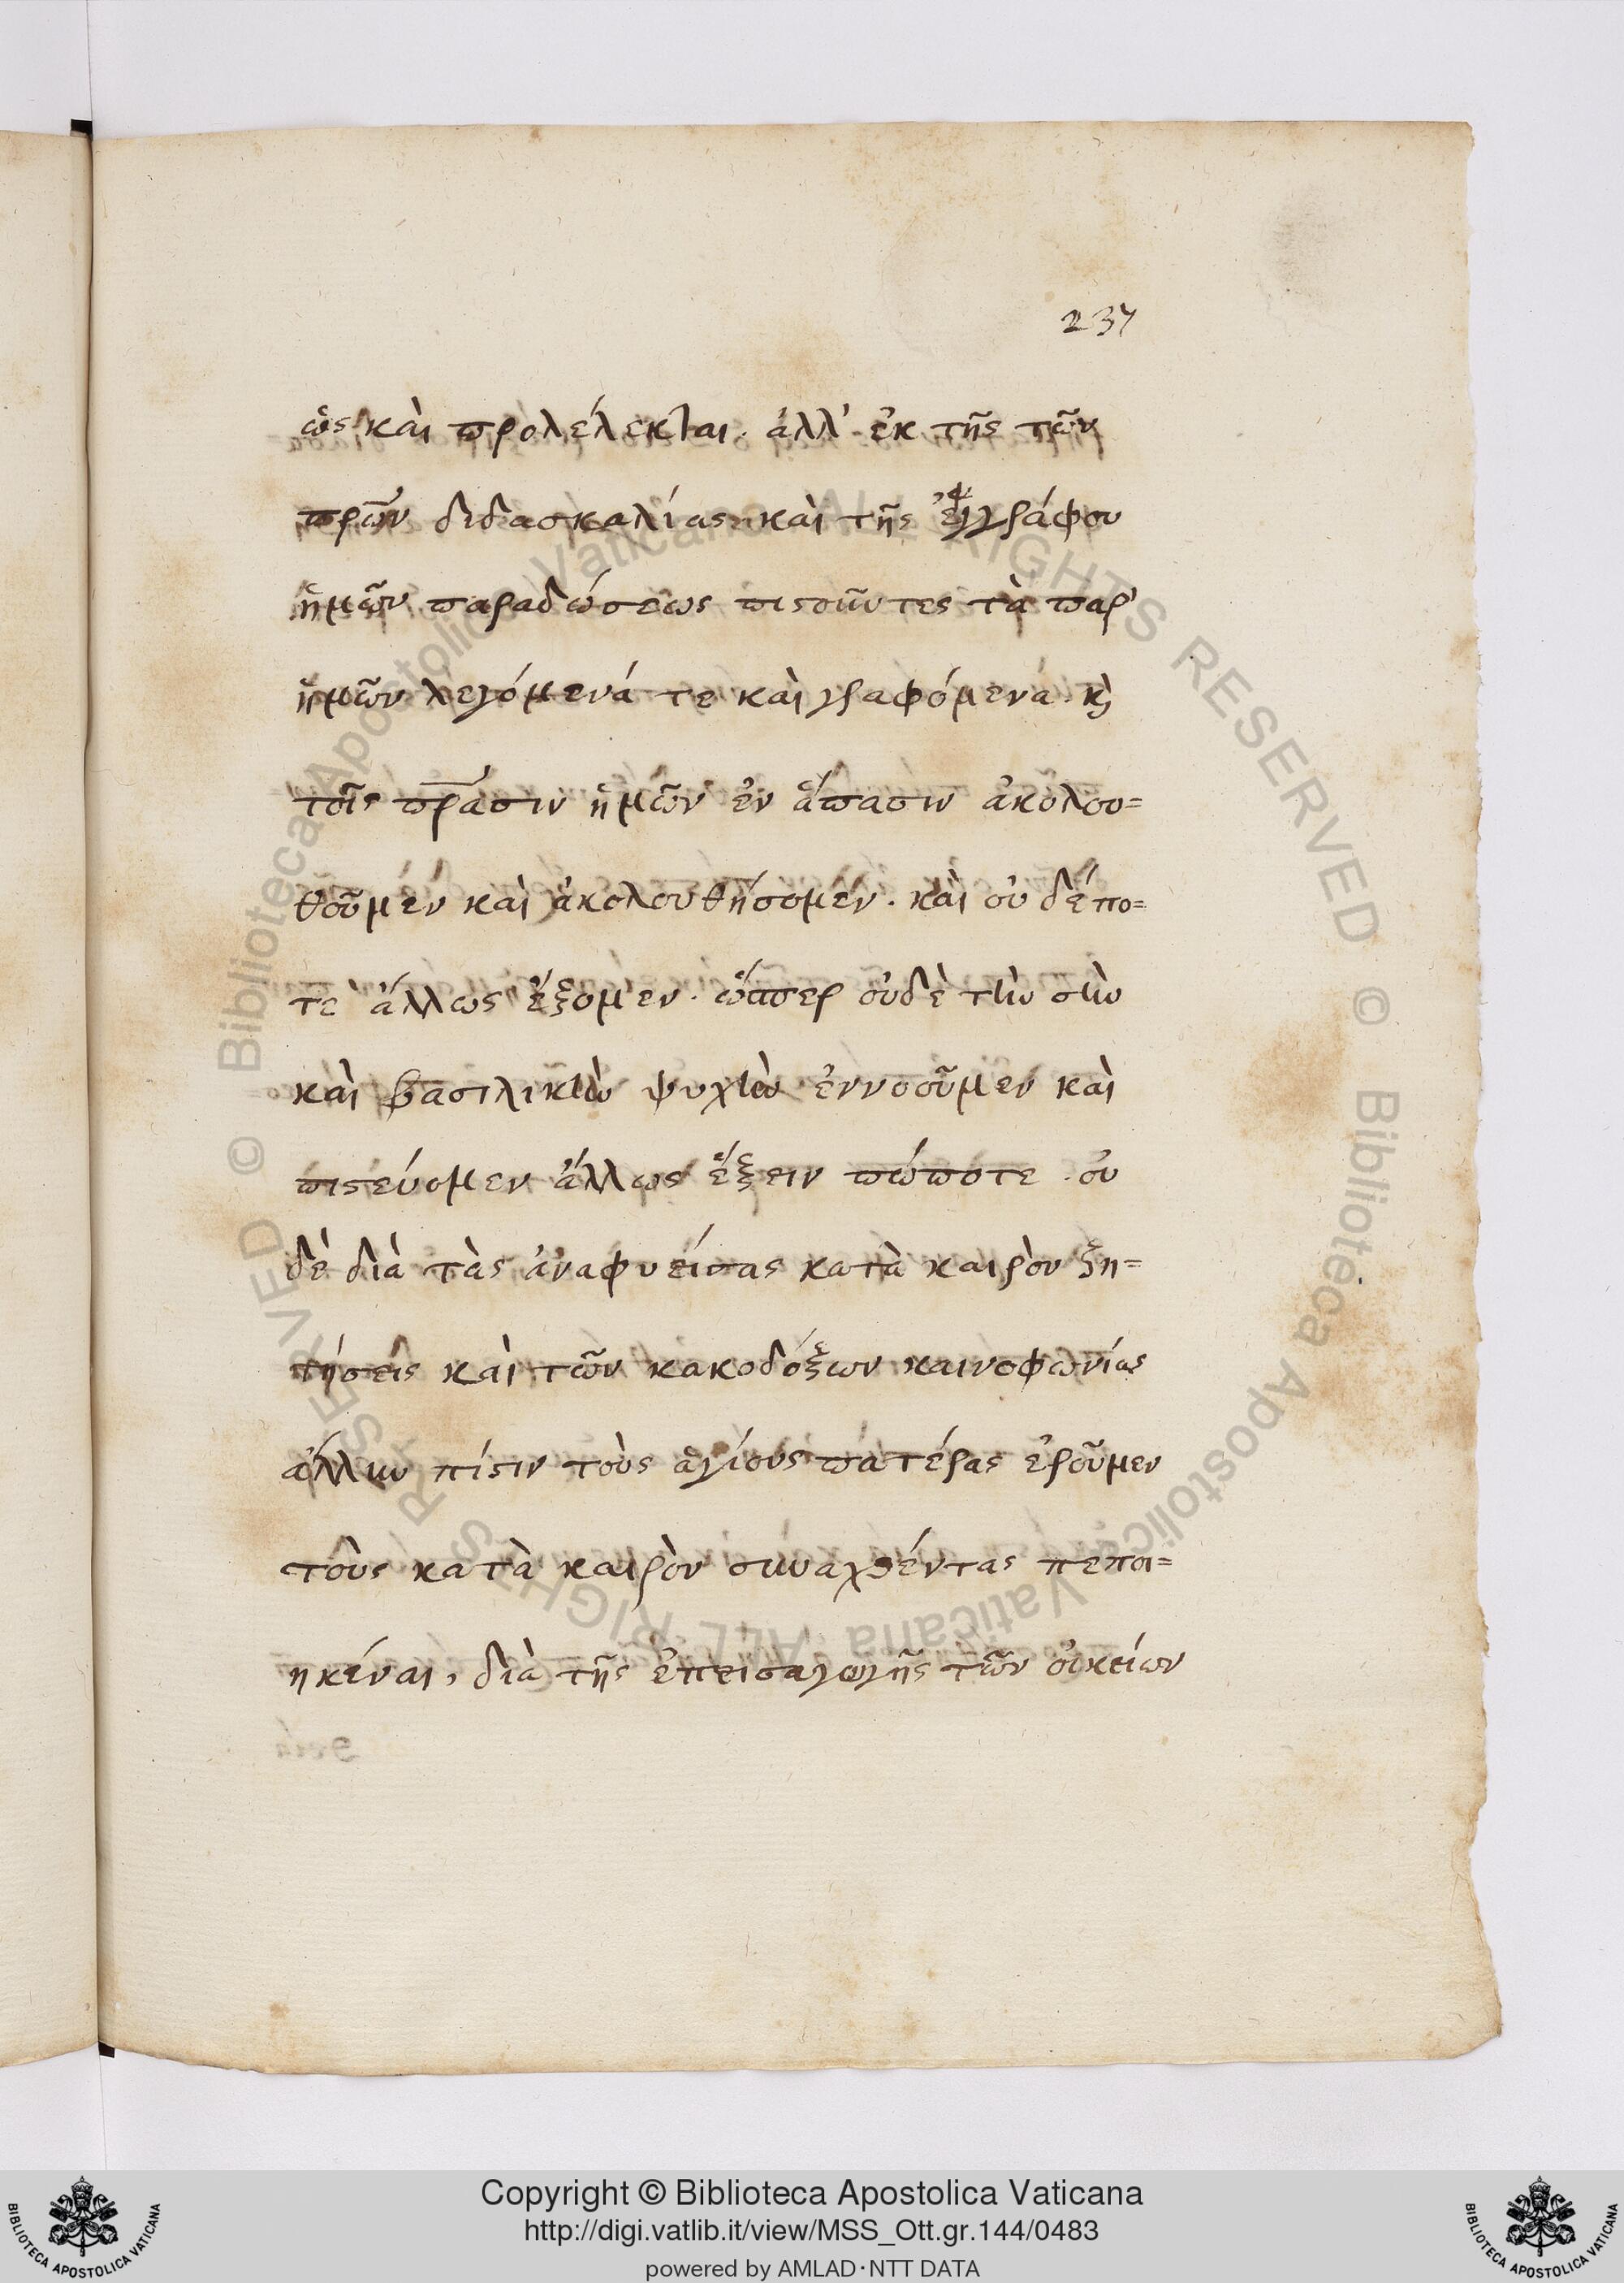 237
ὡς καὶ προλέλεκται. ἀλλ' ἐκ τῆς τῶν
πρων διδασκαλίας καὶ τῆς ἐγγράφου
ἡμῶν παραδώσεως πιστοῦντες τὰ παρ'
ἡμῶν λεγόμενά τε καὶ γραφόμενα. κὶ
τοῖς πρασιν ἡμῶν ἐν ἅπασιν ἀκολου=
θοῦμεν καὶ ἀκολουθήσομεν. καὶ οὐδέπο=
τε ἄλλως ἕξομεν. ὥσπερ οὐδὲ τὴν σὴν
καὶ βασιλικὴν ψυχὴν ἐννοοῦμεν καὶ
πιστεύομεν ἄλλως ἕξειν πώποτε. οὐ
δὲ διὰ τὰς ἀναφυείσας κατὰ καιρὸν ζη=
τήσεις καὶ τῶν κακοδόξων καινοφωνίας
ἄλλην πίστιν τοὺς ἁγίους πατέρας ἐροῦμεν
τοὺς κατὰ καιρὸν συναχθέντας πεποι=
ηκέναι, διὰ τῆς ἐπεισαγωγῆς τῶν οἰκείων
Copyright © Biblioteca Apostolica Vaticana
http://digi.vatlib.it/view/MSS_Ott.gr.144/0483
powered by AMLAD·NTT DATA
BIBLIOTECA APOSTOLICA VATICANA
BIBLIOTECA APOSTOLICA VATICANA
© Biblioteca Apostolica Vaticana ALL RIGHTS RESERVED © Biblioteca Apostolica Vaticana ALL RIGHTS RESERVED